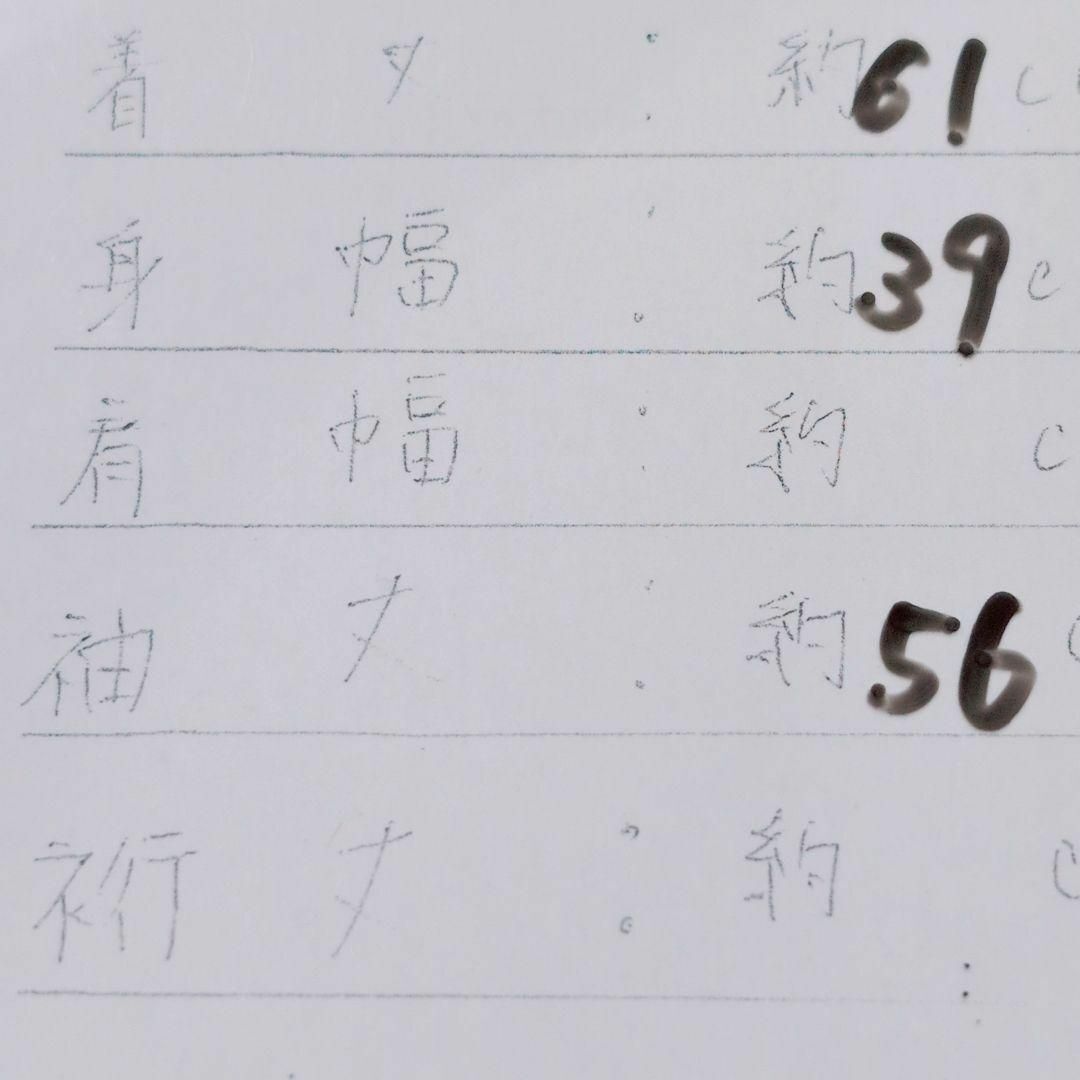 着 丈 : 約61c
身 幅 : 約39c
肩 幅 : 約 c
袖 丈 : 約56c
裄 丈 : 約 c